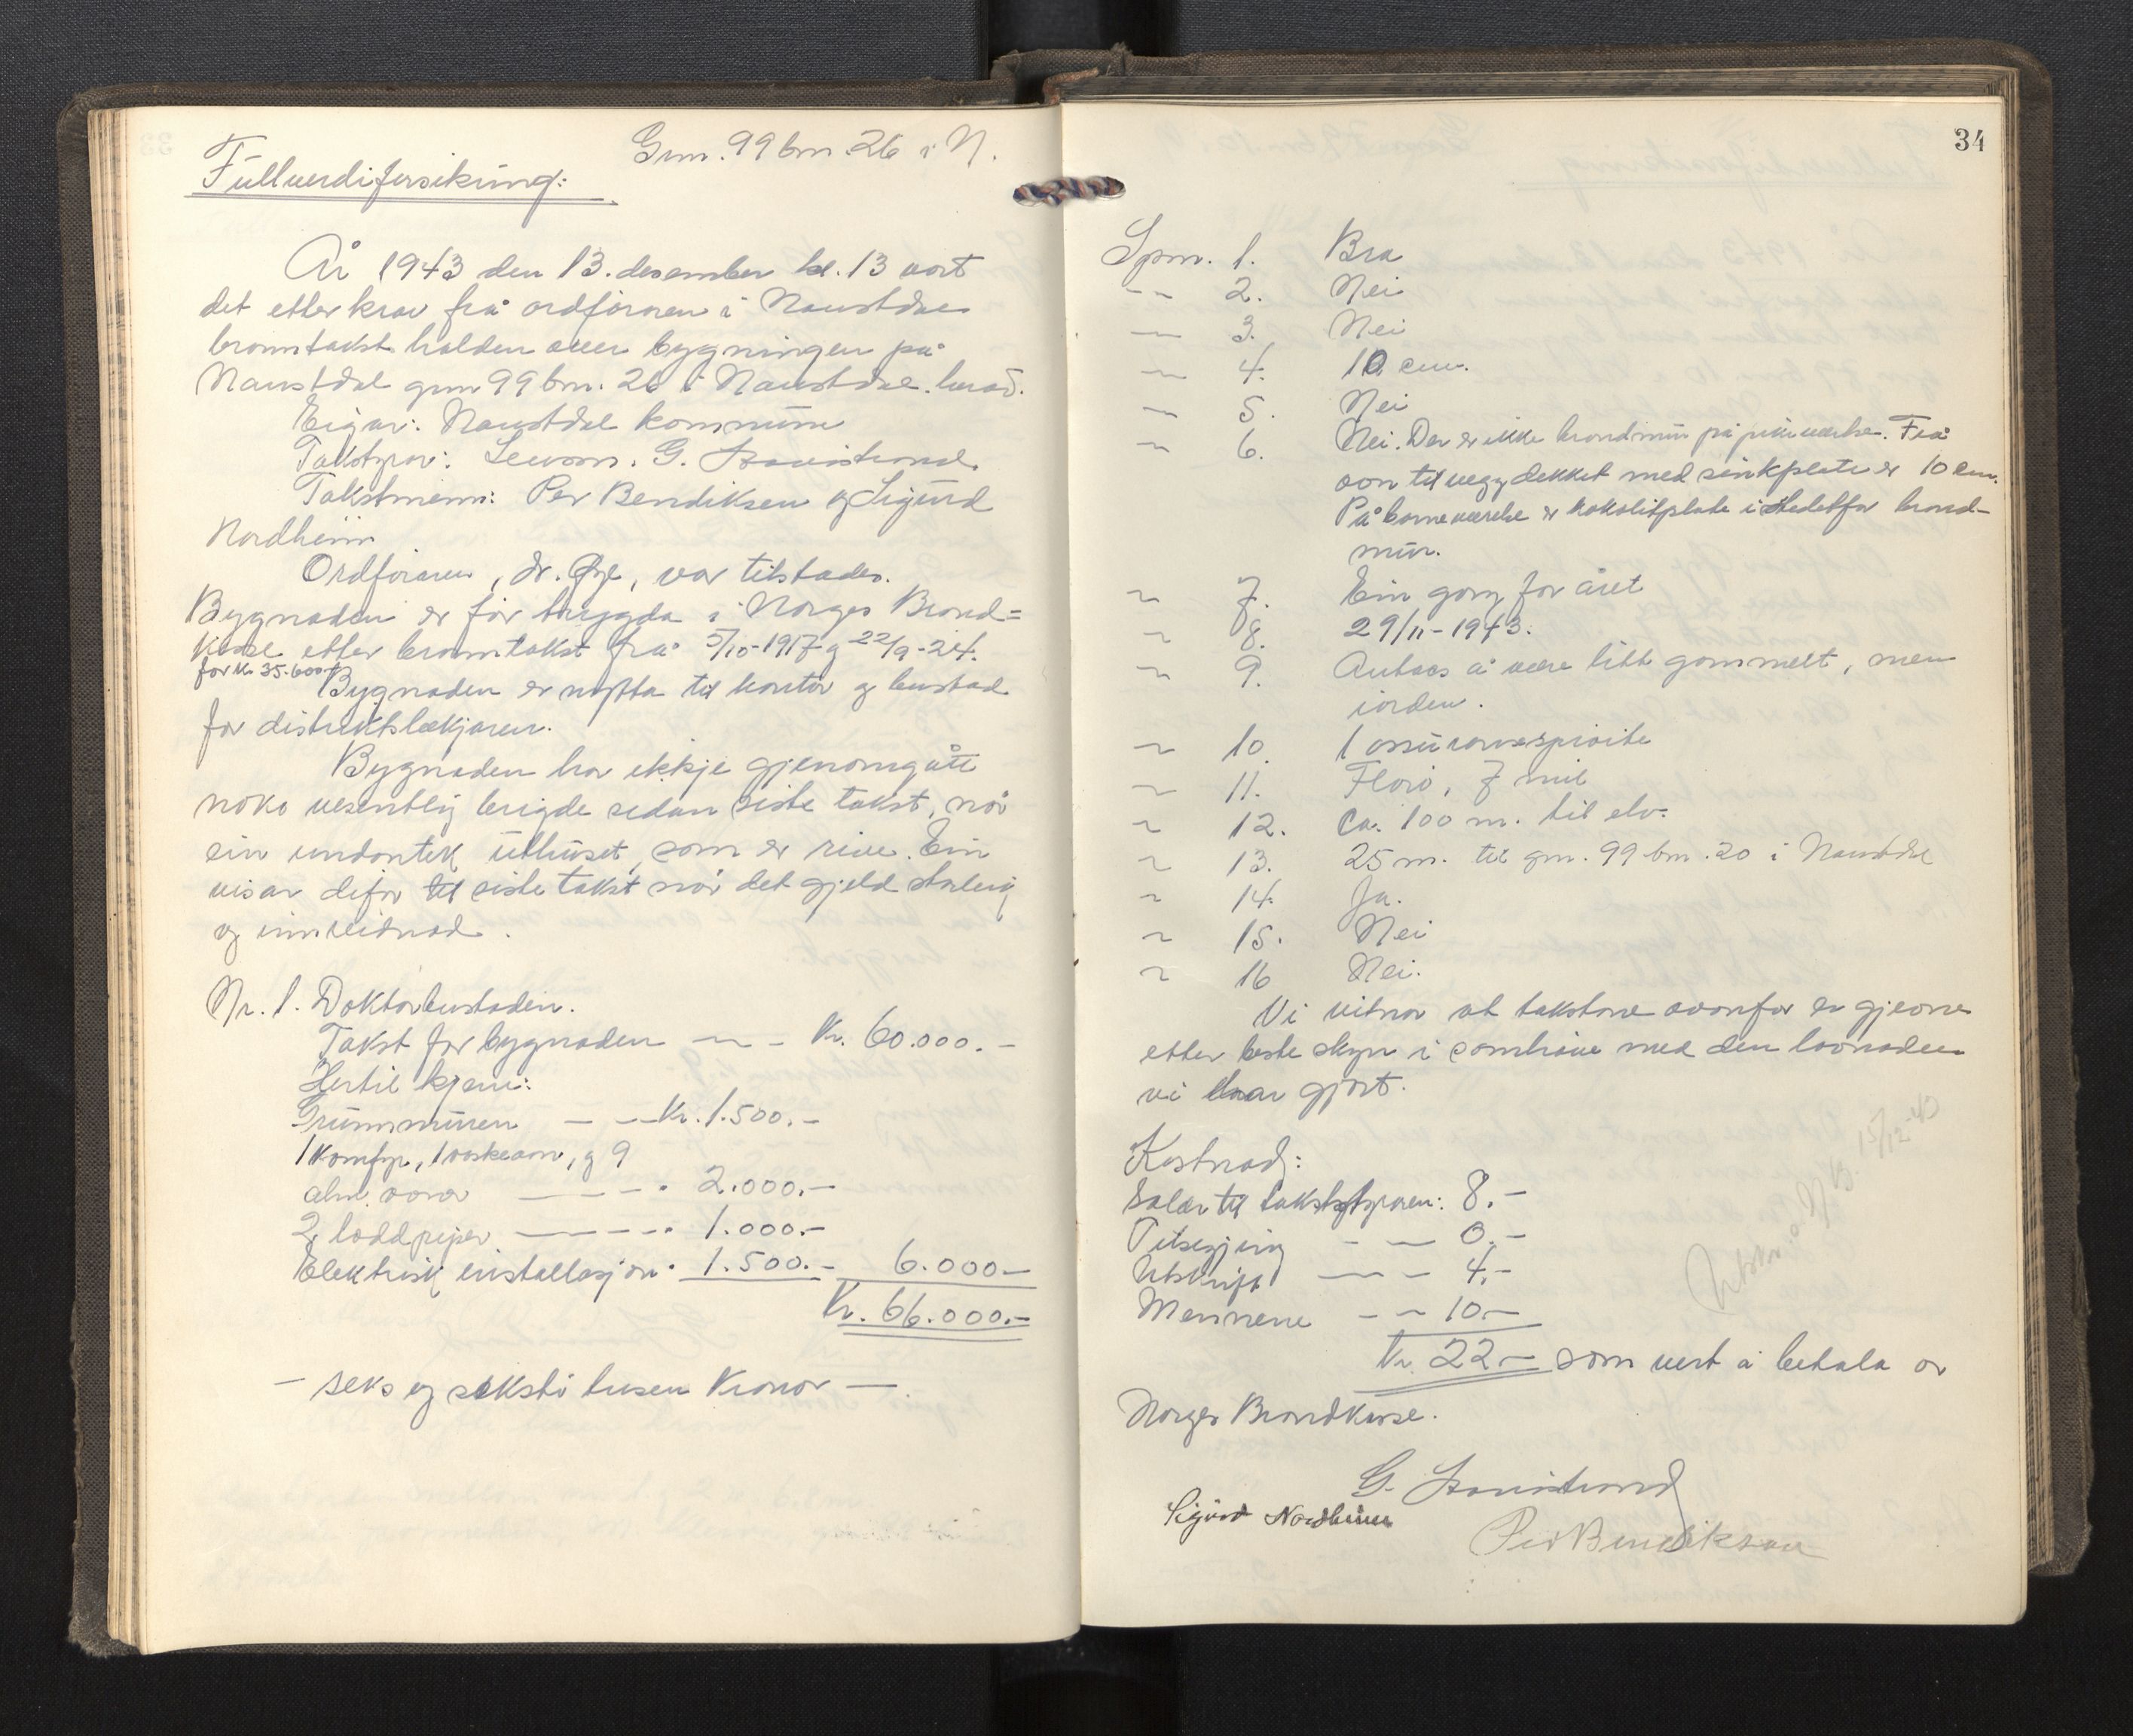 Gnr. 99 bnr. 26 i N.
Fullverdiforsikring:
År 1943 den 13. desember kl. 13 vart
det etter krav frå ordføraren i Naustdal
branntakst halden over bygningen på
Naustdal gnr 99 bnr. 26 i Naustdal herad.
Eigar: Naustdal kommune
Takstyrar: Lensm. G.
Takstmenn: Per Bendiksen og Sigurd
Nordheim
Ordføraren, dr. Øye, var tilstades.
Bygnaden er før trygda i Norges Brand=
kasse etter branntakst frå 5/10-1917 og 22/9-24.
for kr. 35.600.-
Bygnaden er nytta til kontor og bustad
for distriktslækjaren.
Bygnaden har ikkje gjenomgått
noko vesentlig brigde sidan siste takst, når
ein undantek uthuset, som er rive. Ein
visar difor til siste takst når det gjeld
og innreidnad.
Nr. 1. Doktorbustaden.
Takst for bygnaden — - Kr. 60.000.-
Hertil kjem:
Grunnmuren — — Kr. 1.500.-
1 komfyr, 1 vaskeomn, og 9
alm. ovner — — - " 2.000.-
2 loddpiper — — - " 1.000.-
Elektrisk installasjon " 1.500.- 6.000-
Kr. 66.000.-
— seks og seksti tusen kronor —.
34
Spm. 1. Bra
— 2. Nei
— 3. Nei
— 4. 10 cm.
— 5. Nei
— 6. Nei. Der er ikke brandmur på pikeværelse. Frå
ovn til vegg dekket med sinkplate er 10 cm.
På barneværelse er plate i stedetfor brand-
mur.
— 7. Ein gang for året
— 8. 29/11-1943.
— 9. Antaes å være litt gammelt, men
iorden.
— 10. 1 assuransesprøite
— 11. Florø, 7 mil
— 12. Ca. 100 m. til elv.
— 13. 25 m. til gnr. 99 bnr. 20 i Naustdal
— 14. Ja.
— 15. Nei
— 16 Nei.
Vi vitnar at takstane ovanfor er gjevne
etter beste skyn i samhøve med den lovnaden
vi har gjort.
Kostnad:
Salær til takststyraren: 8.-
— — 0.-
Utskrift — — 4.-
Mennene — — 10-
Kr. 22- som vert å betala av
Norges Brandkasse.
Utskr. a. N. B. 15/12-43
G.
Sigurd Nordheim
Per Bendiksen